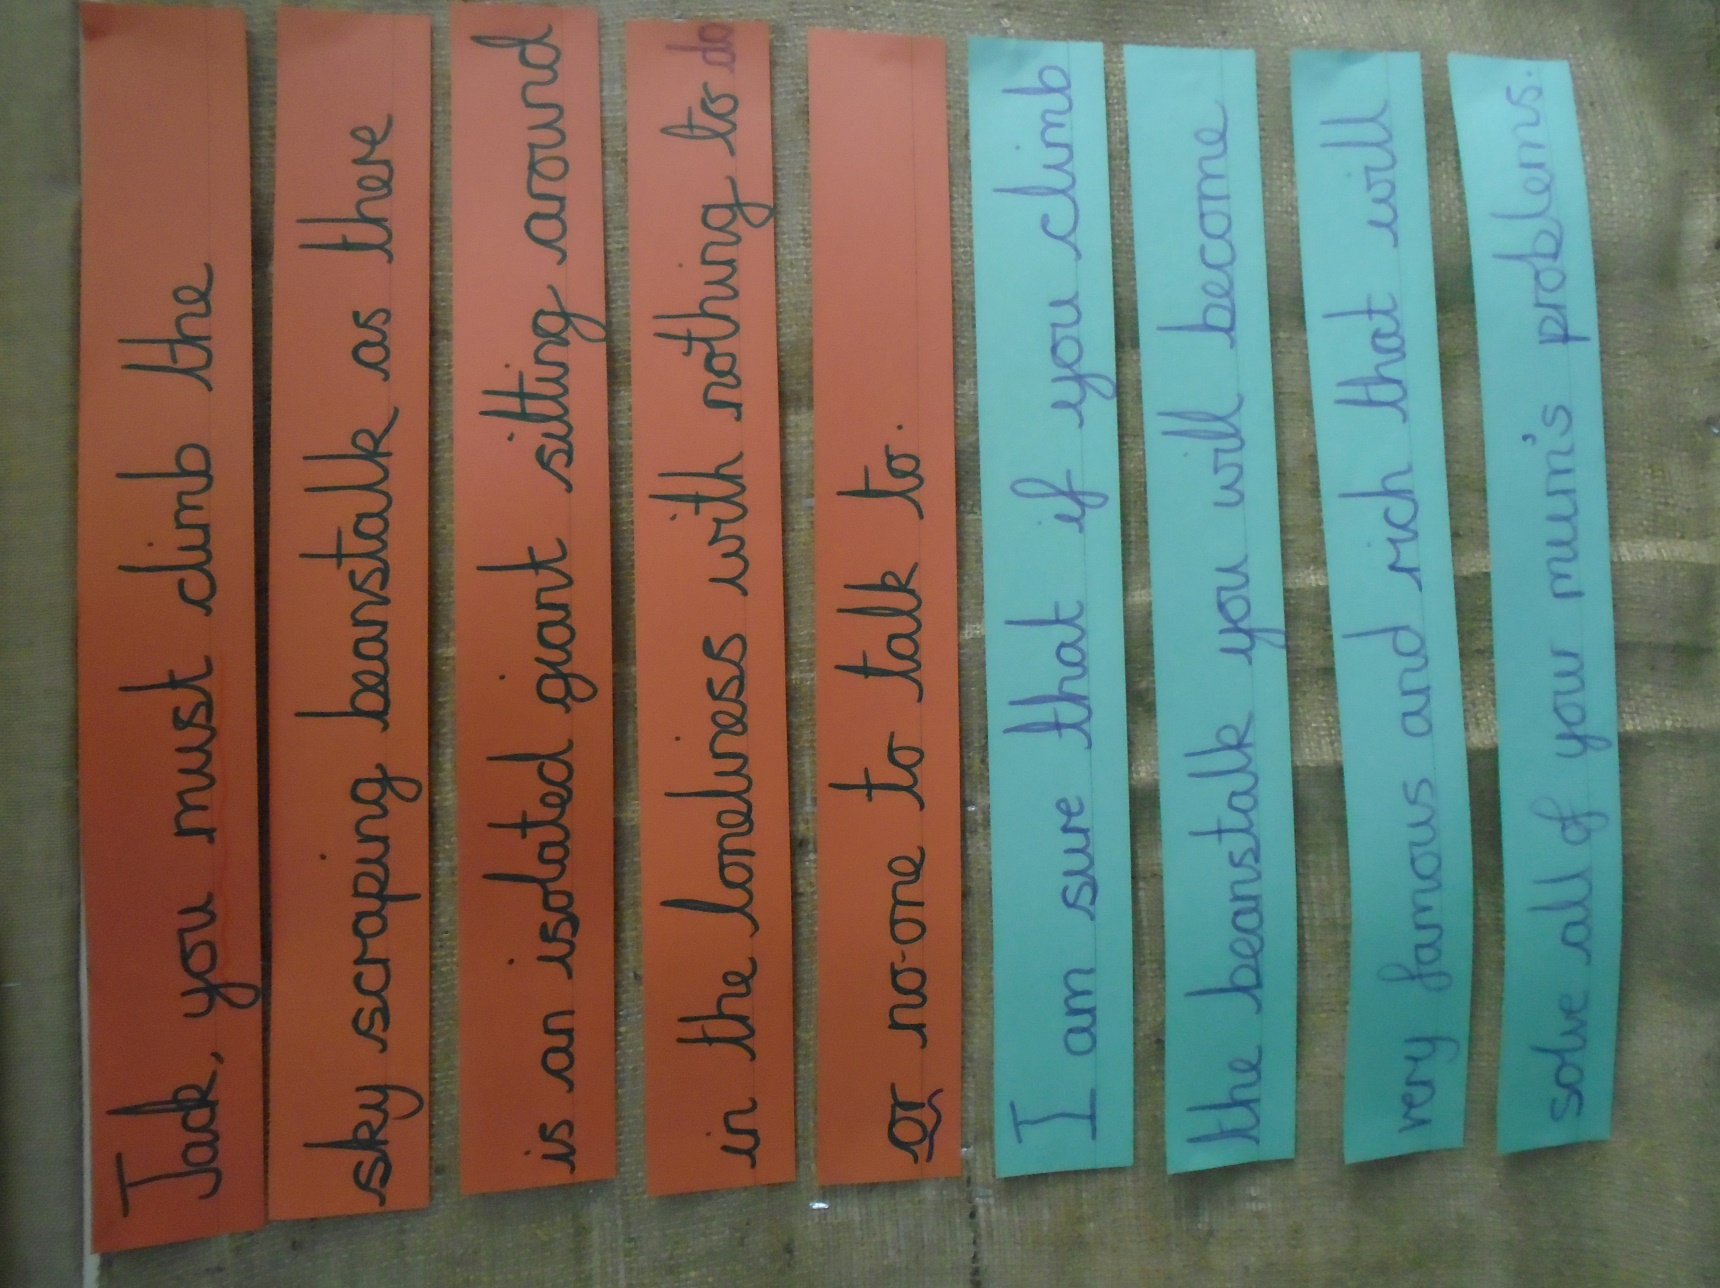 Jack, you must climb the
sky scraping beanstalk as there
is an isolated giant sitting around
in the loneliness with nothing to do
or no-one to talk to.
I am sure that if you climb
the beanstalk you will become
very famous and rich that will
solve all of your mum's problems.